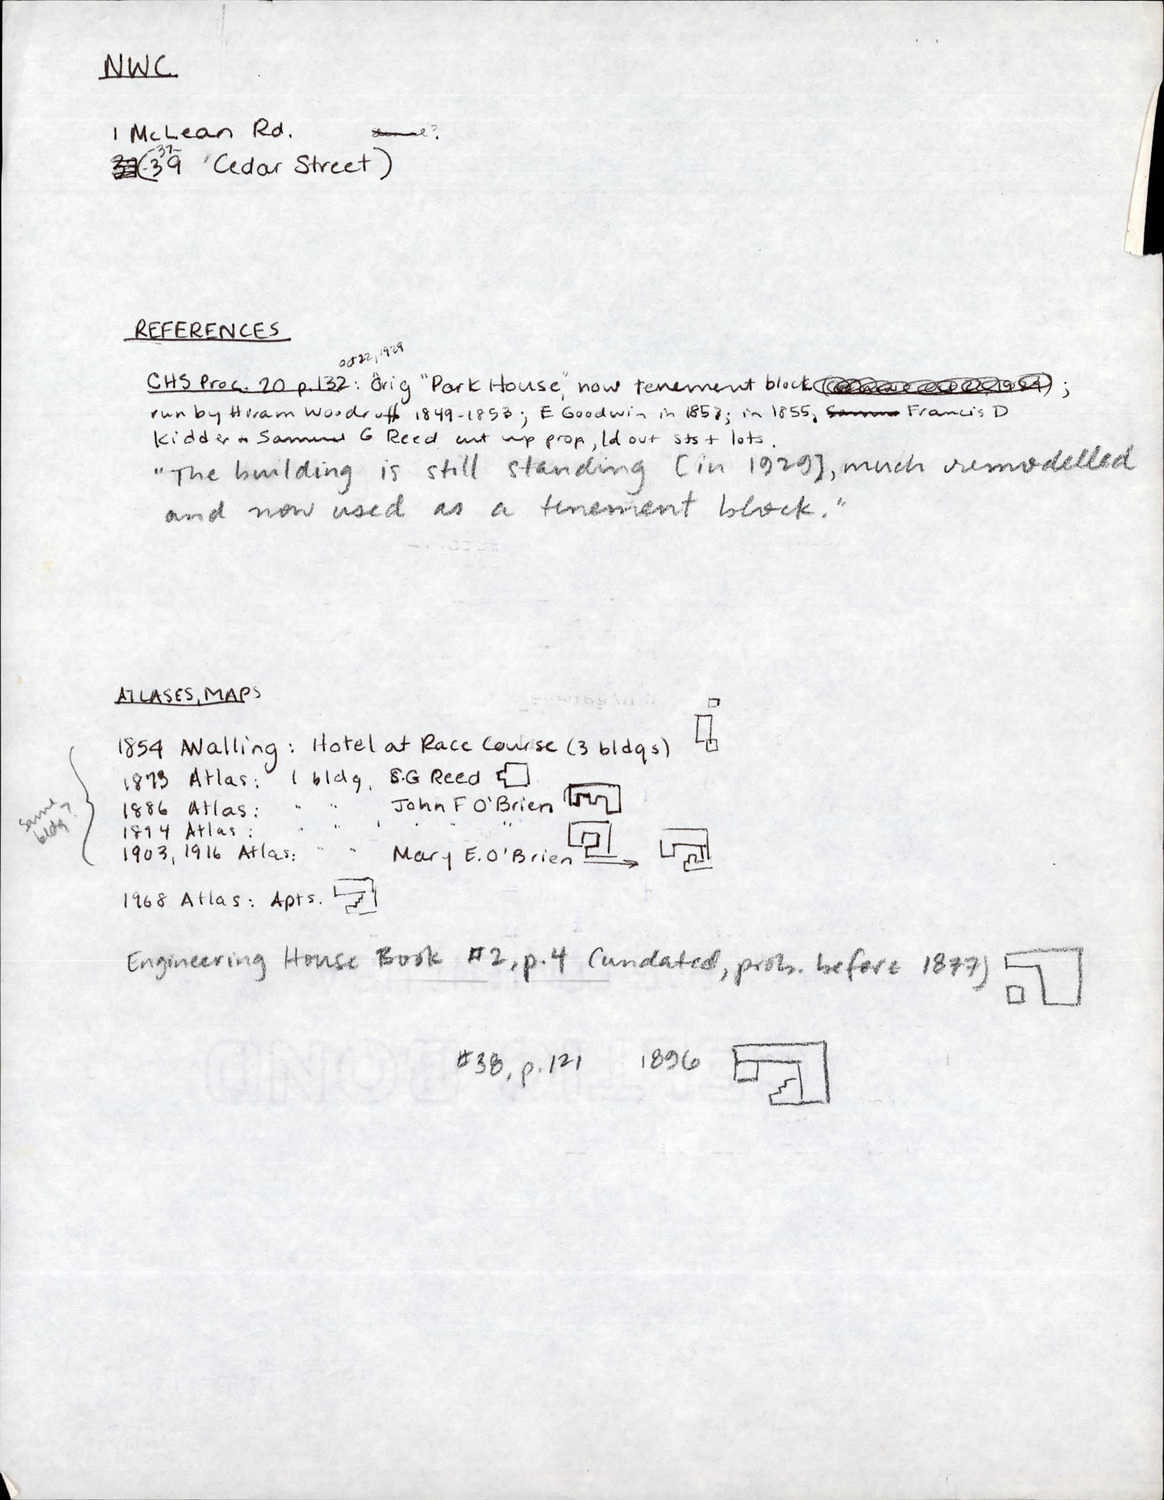 NWC
1 McLean Rd.
-37-
(39 Cedar Street)
REFERENCES
Oct 22, 1929
CHS Proc. 20 p.132: Orig "Park House", now tenement block ;
run by Hiram Woodruff 1849-1853; E Goodwin in 1857; in 1855, Francis D
Kidder + Samuel G Reed cut up prop, ld out sts + lots.
"The building is still standing [in 1929], much remodelled
and now used as a tenement block."
ATLASES, MAPS
1854 Walling: Hotel at Race Course (3 bldgs)
1873 Atlas: 1 bldg, S.G Reed
1886 Atlas: " " John F O'Brien
1894 Atlas: " " ' " " "
1903, 1916 Atlas: " " Mary E. O'Brien
same bldg?
1968 Atlas: Apts.
Engineering House Book #2, p.4 (undated, prob. before 1877)
#38, p.121 1896